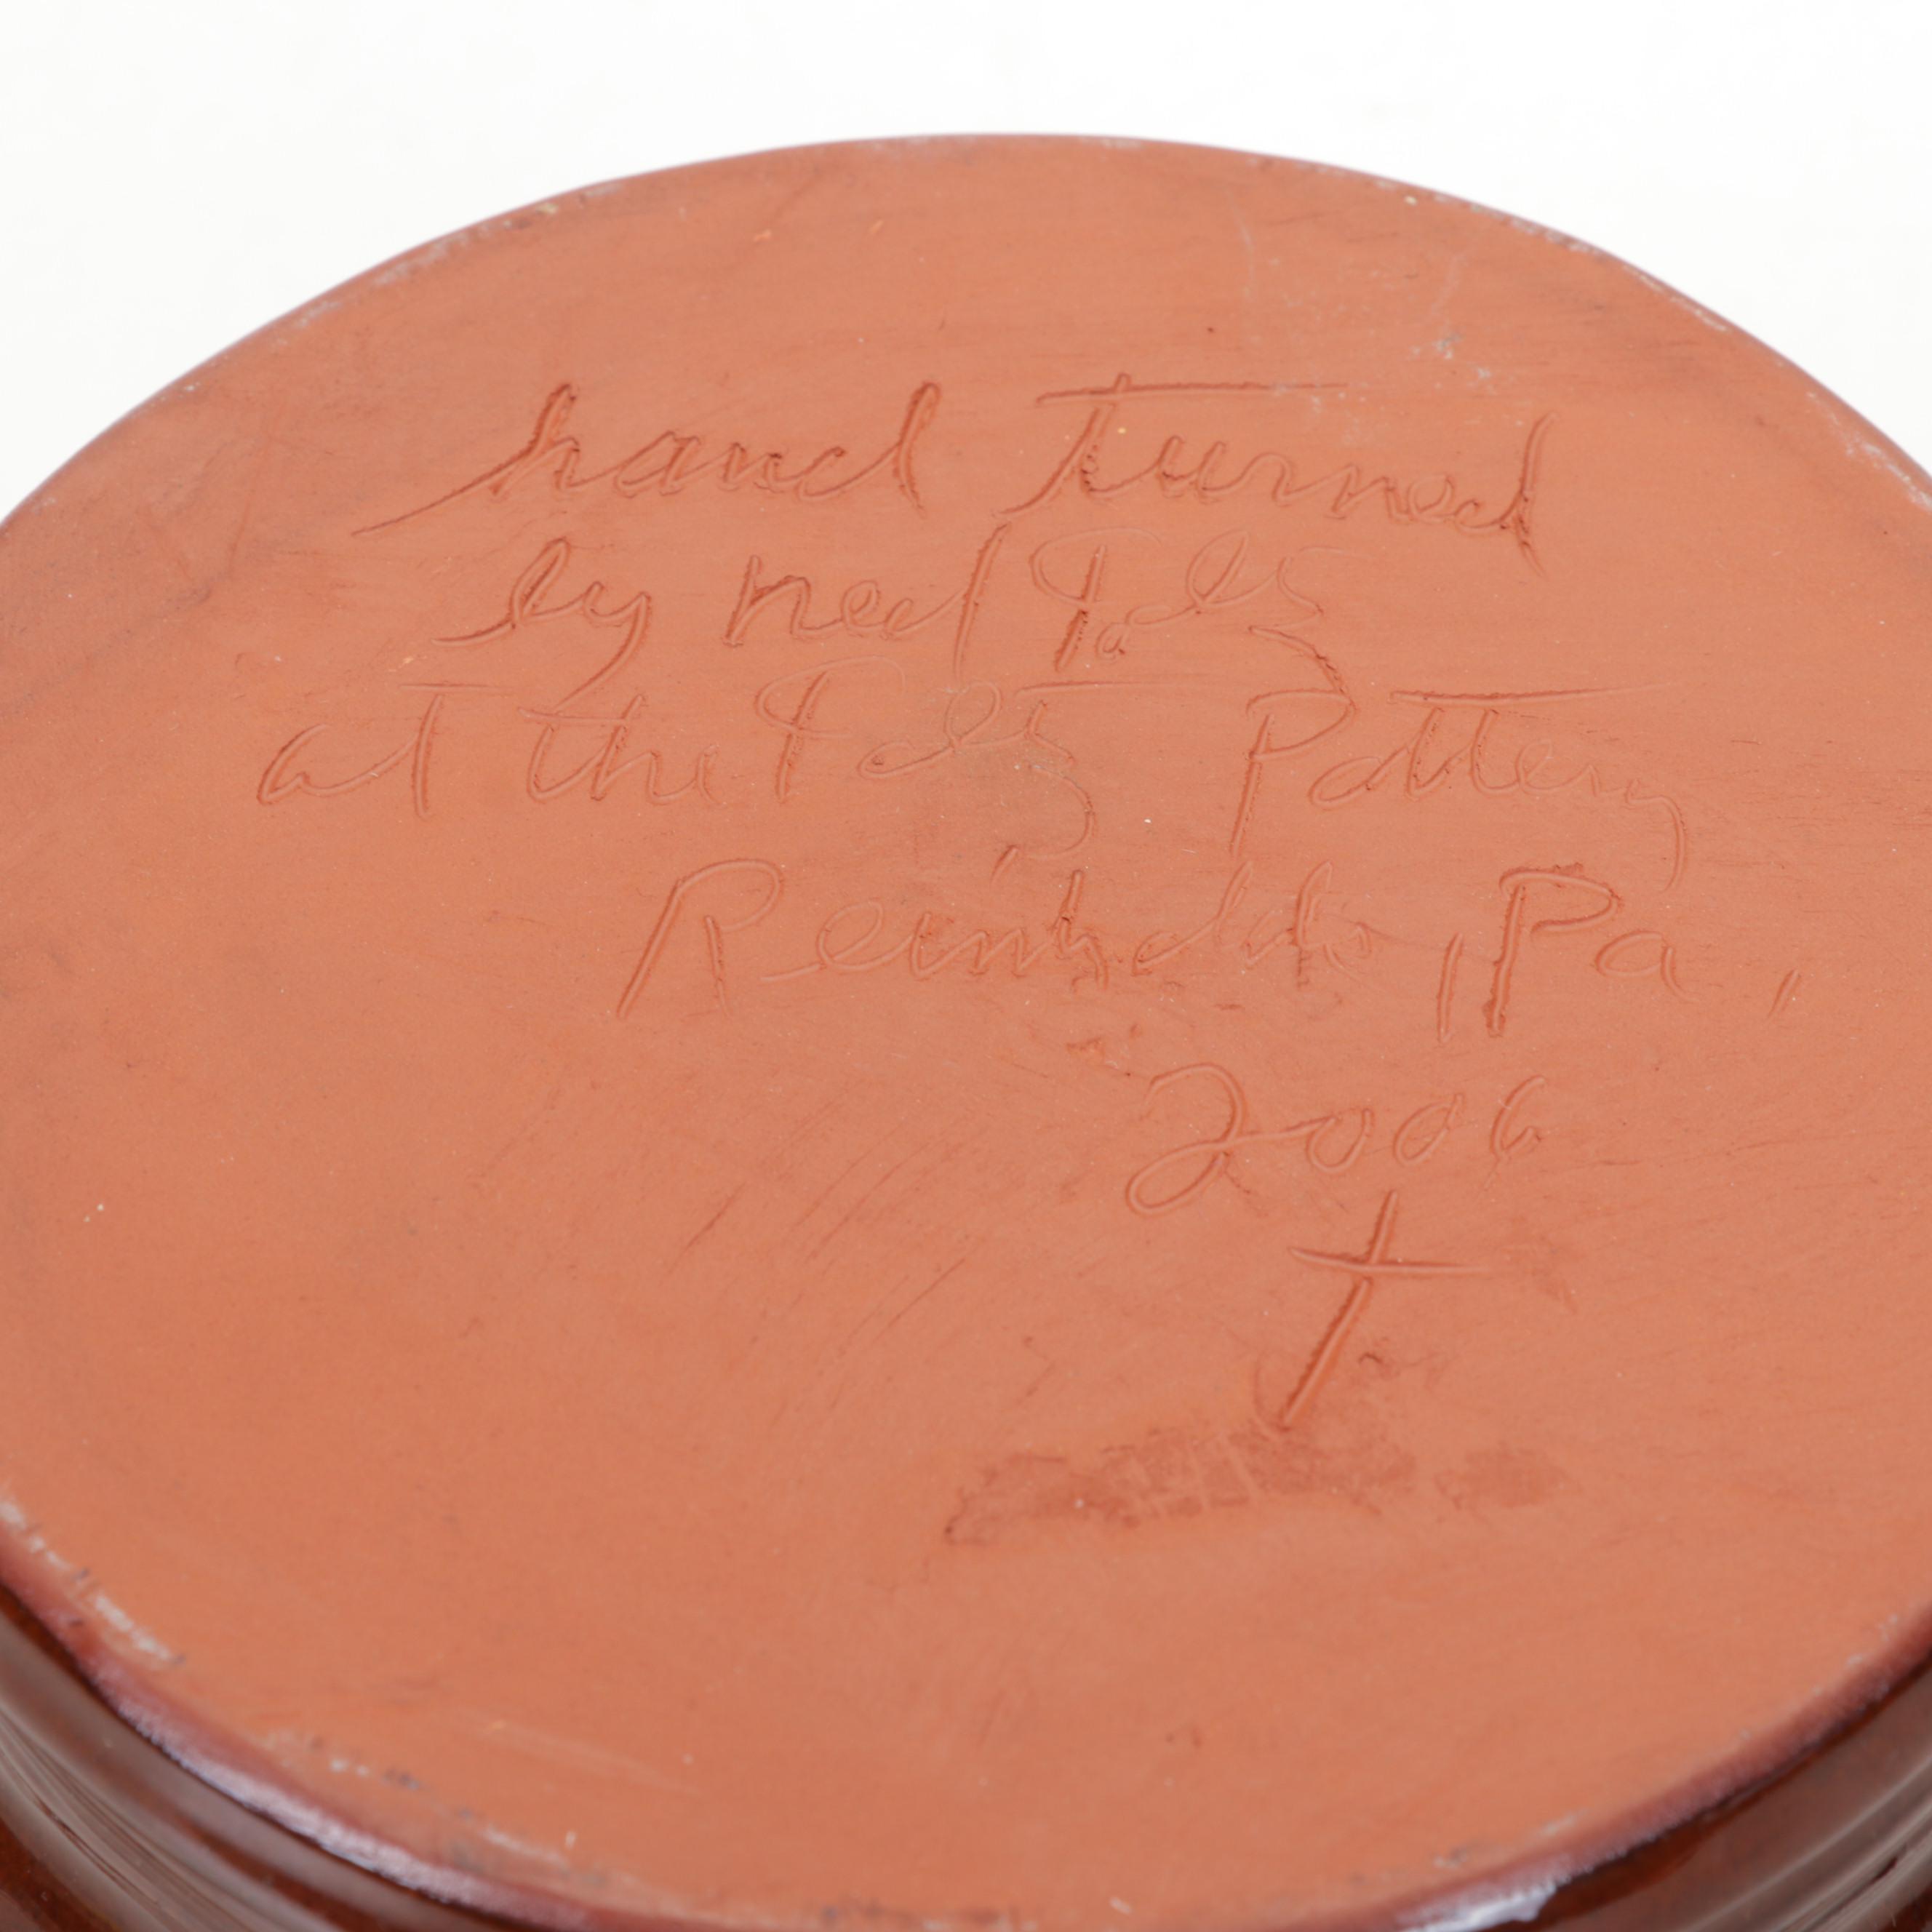 hand turned
by ned Foltz
at the Foltz Pottery
Reinholds, Pa,
2006